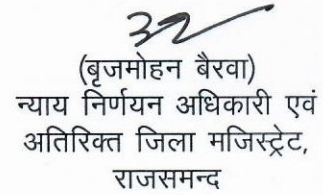 (बृजमोहन बैरवा)
न्याय निर्णयन अधिकारी एवं
अतिरिक्त जिला मजिस्ट्रेट,
राजसमन्द